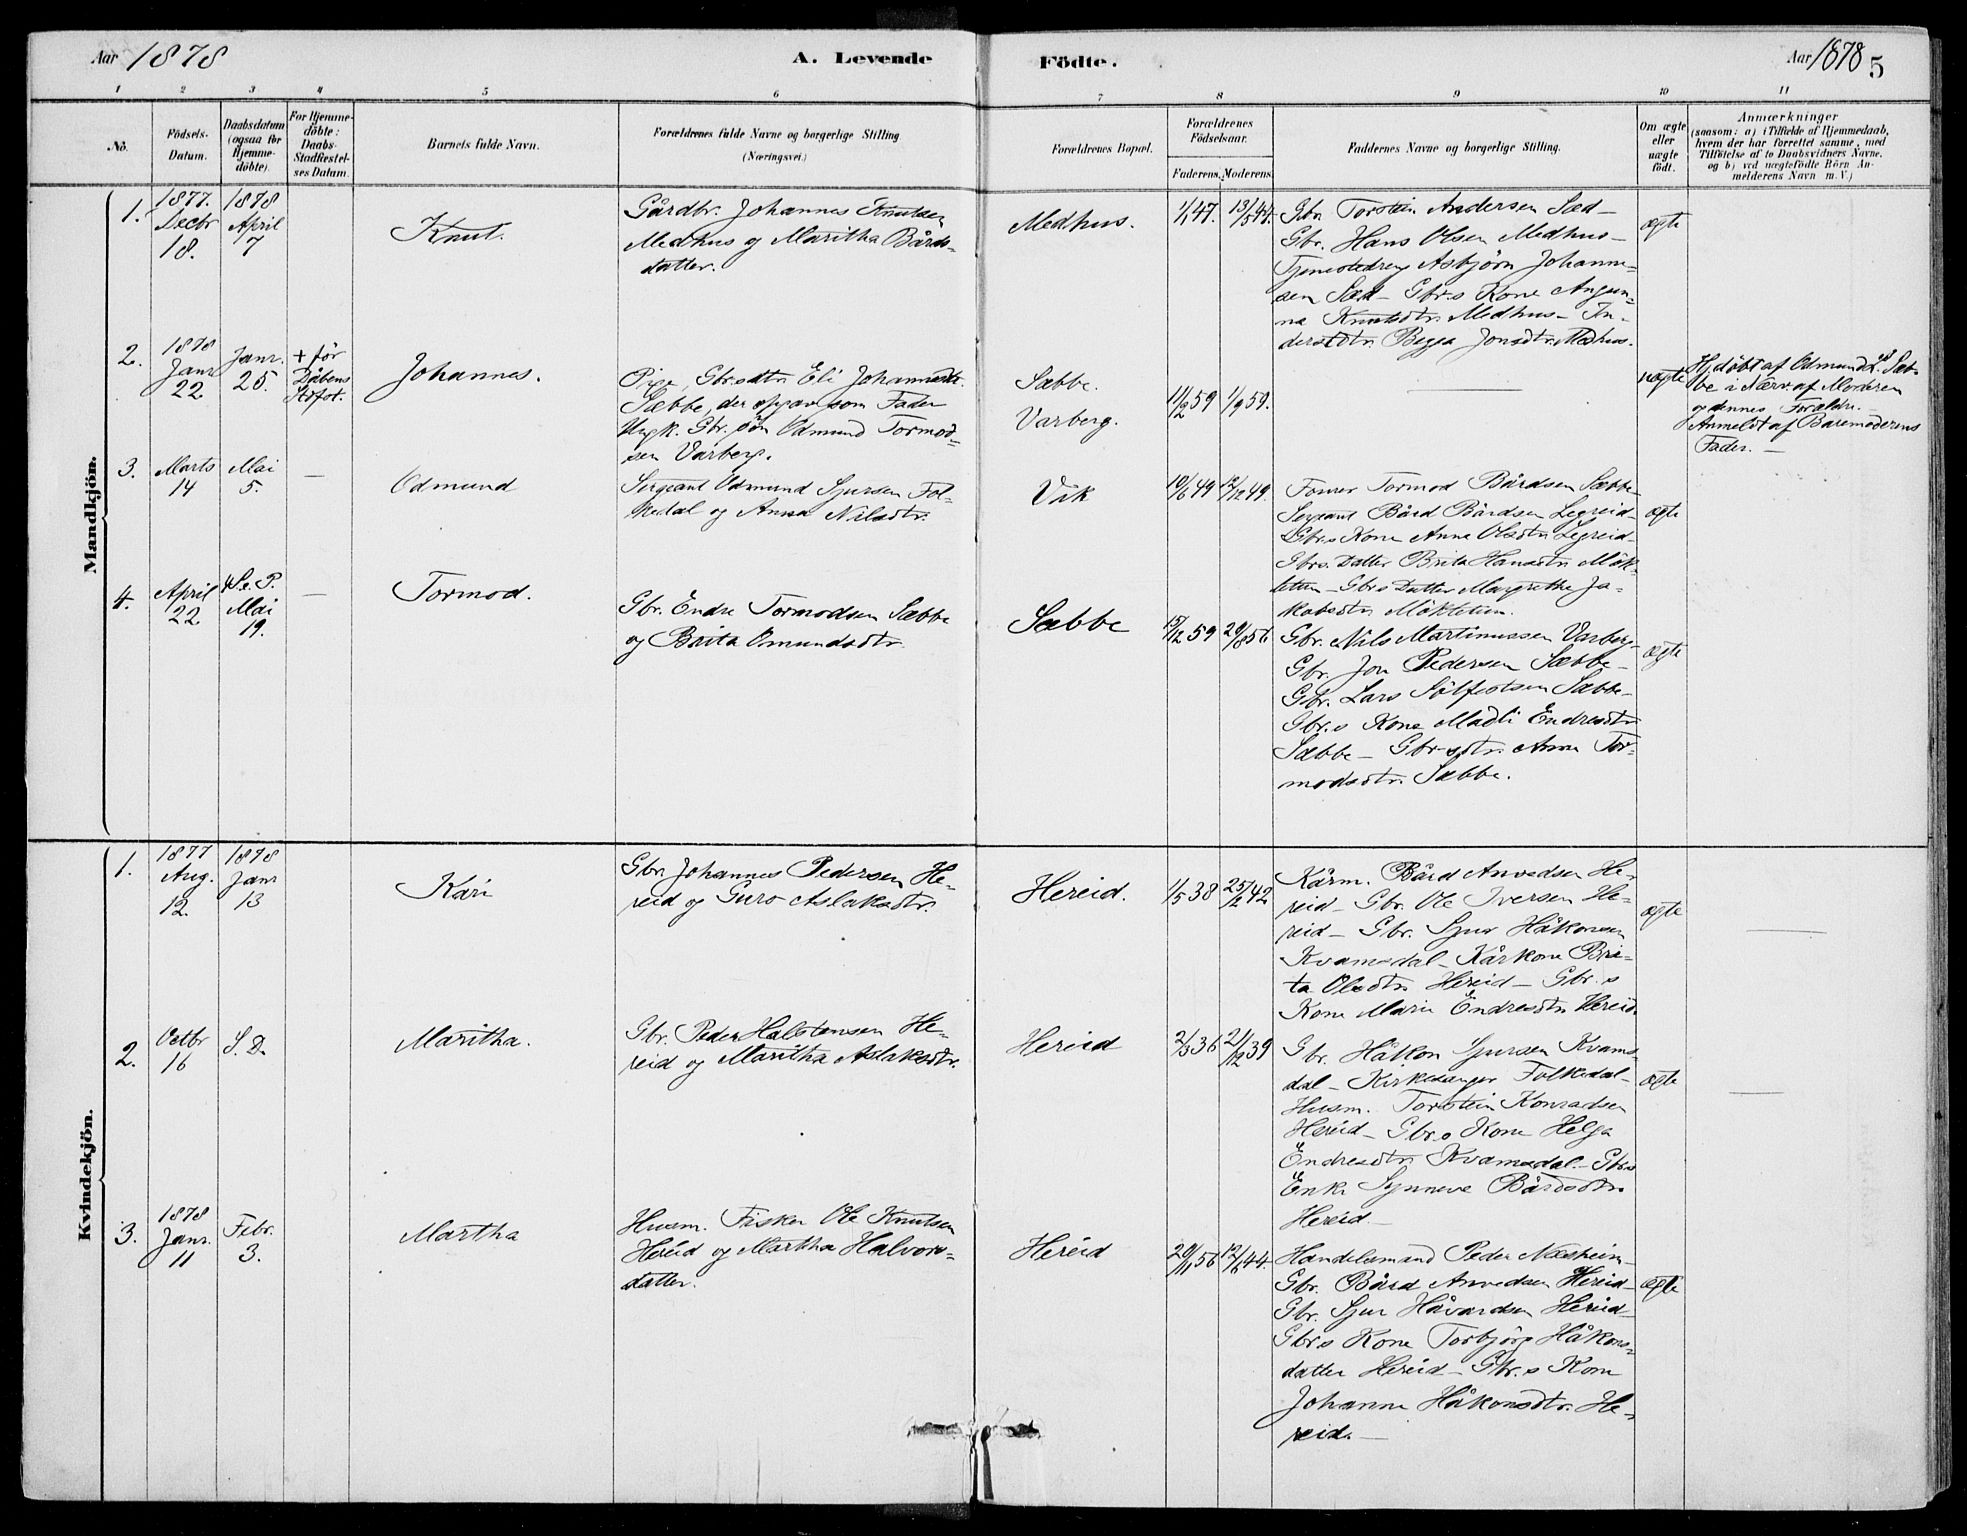 Aar 1878
A. Levende
Födte.
Aar 1878
5
1 2 3 4 5 6 7 8 9 10 11
No.
Födsels-
Datum.
Daabsdatum
(ogsaa for
Hjemme-
döbte).
For Hjemme-
döbte:
Daabs-
Stadfæstel-
ses Datum.
Barnets fulde Navn.
Forældrenes fulde Navne og borgerlige Stilling
(Næringsvei.)
Forældrenes Bopæl.
Forældrenes
Födselsaar.
Faderens. Moderens.
Faddernes Navne og borgerlige Stilling.
Om ægte
eller
uægte
födt.
Anmærkninger
(saasom: a) i Tilfælde af Hjemmedaab,
hvem der har forrettet samme, med
Tilföielse af to Daabsvidners Navne.
og b) ved uægtefödte Börn An-
melderens Navn m. V.)
Mandkjön.
1.
1877.
Decbr
18.
1878
April
7
Knut.
Gårdbr. Johannes Knutsen
Medhus og Maritha Bårds-
datter.
Medhus.
1/1 47. 13/5 44.
Gbr. Torstein Andersen Sæd-
Gbr. Hans Olsen Medhus-
Tjenestedreng Asbjörn Johanne-
sen Sæd- Gbr.s Kone Angun-
na Knutsdtr. Medhus- In-
derstdtr. Begga Jonsdtr. Medhus.
ægte
2.
1878
Janr
22
Janr.
25.
+ för
Dåbens
Stfst.
Johannes.
Pige, Gbr.sdtr. Eli Johannesdtr.
Sæbbe, der opgav som Fader
Ungk. Gbr. sön Odmund Tormod-
sen Varberg.
Sæbbe.
Varberg.
11/2 59 1/9 59.
uægte
Hj.döbt af Odmund L. Sæb-
be i Nærv. af Moderen
og dennes Forældre.
Anmeldt af Barnemoderens
Fader.
3.
Marts
14
Mai
5.
Odmund
Sergeant Odmund Sjursen Fol-
kedal og Anna Nilsdtr.
Vik
10/6 49 12/12 49.
Tormod Bårdsen Sæbbe
Sergeant Bård Bårdsen Legreid-
Gbr.s Kone Anne Olsdtr. Legreid-
Gbrs. Datter Brita Hansdtr. Mök-
letun- Gbr.s Datter Margrethe Ja-
kobsdtr. Mökletun.
ægte
4.
April
22
4 S. e. P.
Mai
19.
Tormod.
Gbr. Endre Tormodsen Sæbbe
og Brita Omundsdtr.
Sæbbe
15/12 59 20/8 56
Gbr. Nils Martinussen Varberg-
Gbr. Jon Pedersen Sæbbe-
Gbr. Lars Sölfestsen Sæbbe-
Gbr.s Kone Madli Endresdtr
Sæbbe- Gbr.sdtr. Anna Tor-
modsdtr. Sæbbe.
ægte
Kvindekjön.
1.
1877
Aug.
12.
1878
Janr
13
Kari
Gbr. Johannes Pedersen He-
reid og Guro Aslaksdtr.
Hereid.
1/5 38 25/2 42
Kårm. Bård Anvedsen He-
reid- Gbr. Ole Iversen He-
reid- Gbr. Sjur Håkonsen
Kvamsdal- Kårkone Bri-
ta Olsdtr. Hereid- Gbr.s
Kone Mari Endresdtr. Hereid.
ægte
2.
Octbr
16
S. D.
Maritha.
Gbr. Peder Halstensen He-
reid og Maritha Aslaksdtr.
Hereid
2/3 36 21/12 39
Gbr. Håkon Sjursen Kvams-
dal- Kirkesanger Folkedal-
Husm. Torstein Konradsen
Hereid- Gbr.s Kone Helga
Endresdtr. Kvamsdal- Gbr.s
Enke Synneve Bårdsdtr.
Hereid-
ægte
3.
1878
Janr.
11
Febr.
3.
Martha
Husm. Fisker Ole Knutsen
Hereid og Martha Halvors-
datter.
Hereid
20/11 56 12/6 44.
Handelsmand Peder Næsheim-
Gbr. Bård Anvedsen Hereid-
Gbr. Sjur Håvardsen Hereid-
Gbr.s Kone Torbjörg Håkons-
datter Hereid- Gbr.s Kone
Johanne Håkonsdtr. He-
reid.
ægte